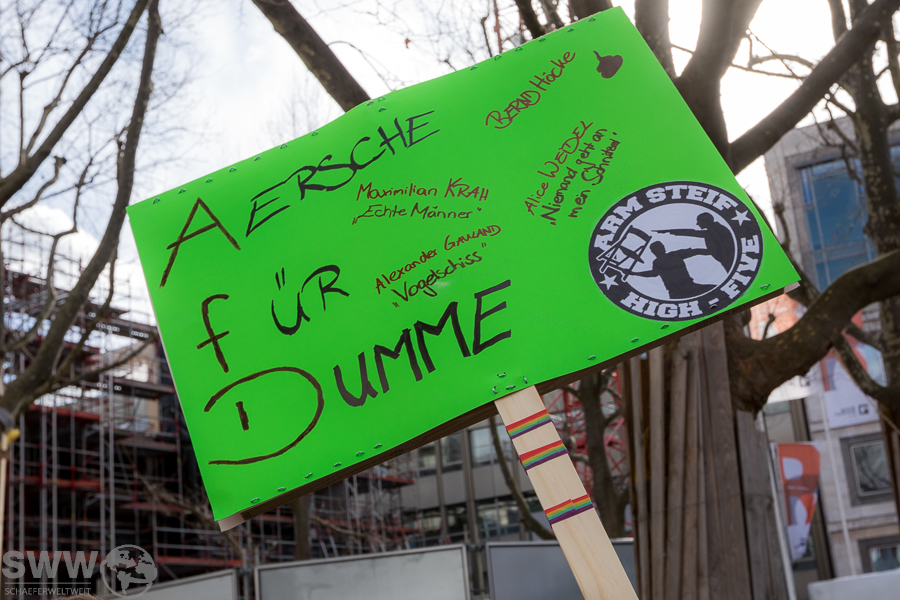 AERSCHE
FÜR
DUMME
Maximilian KRAH
„Echte Männer“
Alexander GAULAND
„Vogelschiss“
BERND Höcke
Alice WEIDEL
„Niemand geht an
mein Schnitzel“
ARM STEIF
HIGH - FIVE
SWW
SCHAEFERWELTWEIT